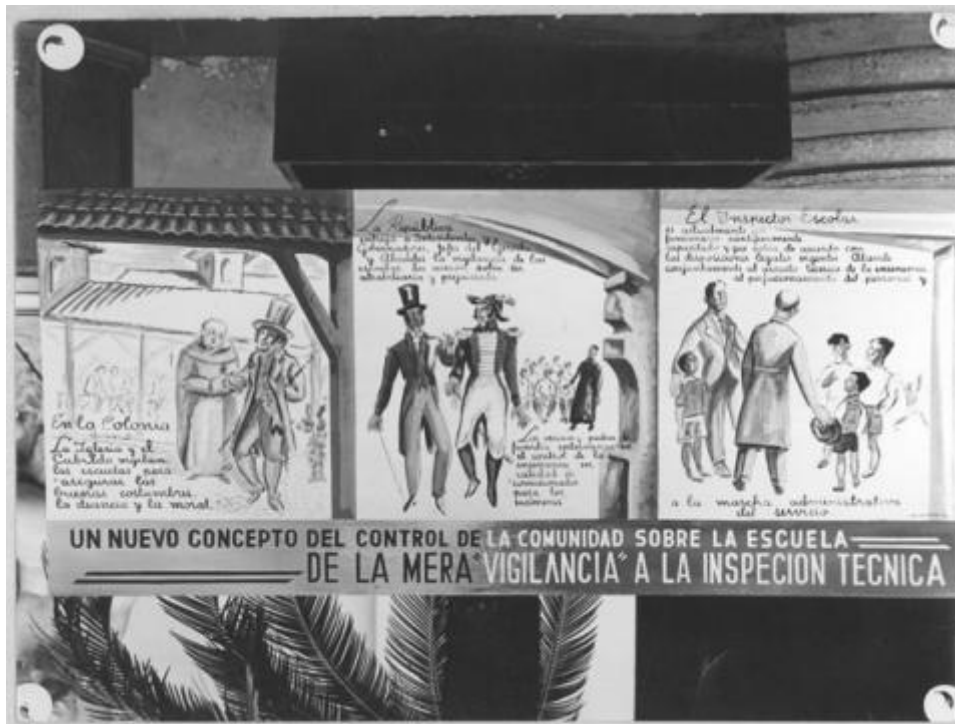 En la Colonia
La Iglesia y el
Cabildo vigilan
las escuelas para
asegurar las
buenas costumbres,
la decencia y la moral.
La República
entrega a Intendentes,
Gobernadores, jefes del Ejército
y Alcaldes la vigilancia de las
escuelas
y
Los curas y padres de
familia
el control de la
enseñanza en
calidad de
para los
exámenes
El Inspector Escolar
es actualmente un
funcionario
capacitado y que actúa de acuerdo con
las disposiciones legales vigentes. Atiende
conjuntamente al aspecto técnico de la enseñanza
al perfeccionamiento del personal y
a la marcha administrativa
del servicio
UN NUEVO CONCEPTO DEL CONTROL DE LA COMUNIDAD SOBRE LA ESCUELA
DE LA MERA "VIGILANCIA" A LA INSPECION TECNICA